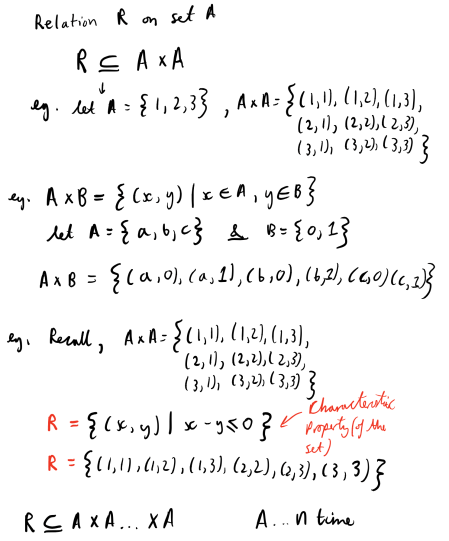 Relation R on set A
R ⊆ A × A
eg. let A = {1, 2, 3} , A×A = {(1,1), (1,2), (1,3),
(2,1), (2,2), (2,3),
(3,1), (3,2), (3,3)}
eg. A × B = {(x, y) | x ∈ A, y ∈ B}
let A = {a, b, c} & B = {0, 1}
A × B = {(a,0), (a,1), (b,0), (b,1), (c,0) (c,1)}
eg. Recall, A×A = {(1,1), (1,2), (1,3),
(2,1), (2,2), (2,3),
(3,1), (3,2), (3,3)}
R = {(x, y) | x - y ⩽ 0}
Characteristic
Property (of the
set)
R = {(1,1), (1,2), (1,3), (2,2), (2,3), (3,3)}
R ⊆ A × A ... × A A ... n time